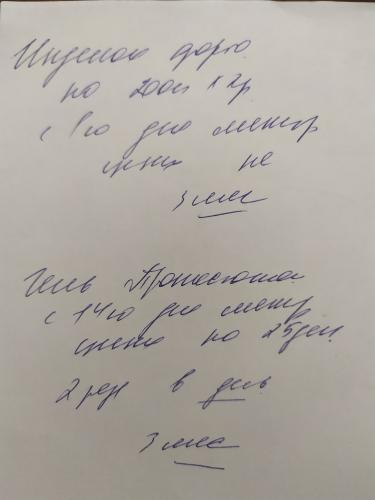 Индинол форто
по 200м × 2р
с 1го дня менстр
3 мес
Гель Прожестожель
с 14го дня менстр
цикла по 25 ден
2 раза в день
3 мес